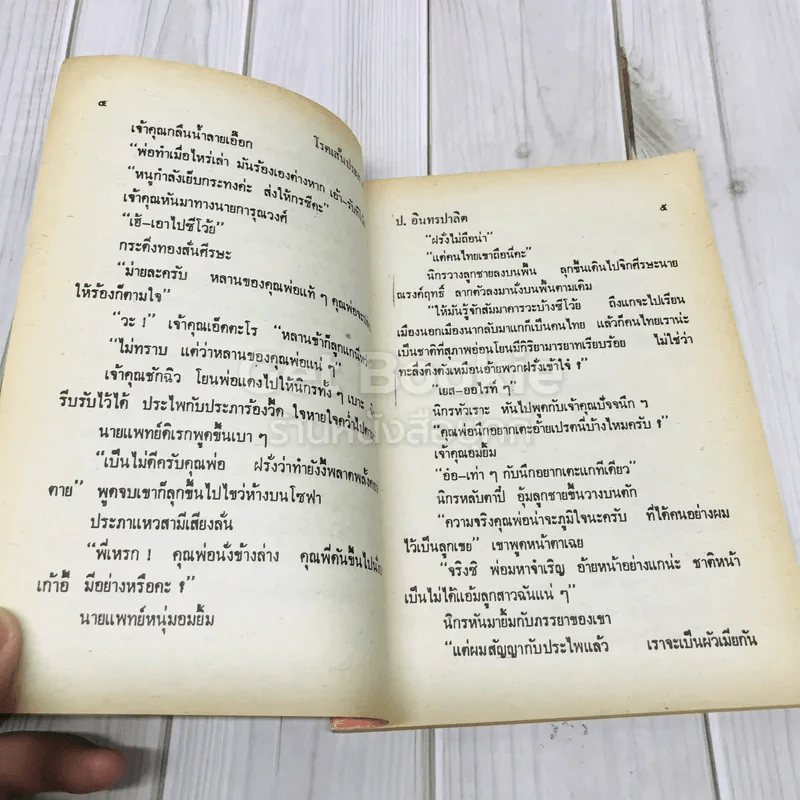 ๔
โรคเส้นประสาท
เจ้าคุณกลืนน้ำลายเอื๊อก
“พ่อทำเมื่อไหร่เล่า มันร้องเองต่างหาก เอ้า-รับ
“หนูกำลังเย็บกระทงค่ะ ส่งให้กรซีคะ”
เจ้าคุณหันมาทางนายการุณวงศ์
“เฮ้-เอาไปซีโว้ย”
กระดิ่งทองสั่นศีรษะ
“ม่ายละครับ หลานของคุณพ่อแท้ ๆ คุณพ่อ
ให้ร้องก็ตามใจ”
“วะ !” เจ้าคุณเอ็ดตะโร “หลานข้าก็ลูกแก
“ไม่ทราบ แต่ว่าหลานของคุณพ่อแน่ ๆ”
เจ้าคุณชักฉิว โยนพ่อแดงไปให้นิกรทั้ง ๆ เบาะ
รีบรับไว้ได้ ประไพกับประภาร้องวี้ด ใจหายใจคว่ำไป
นายแพทย์ดิเรกพูดขึ้นเบา ๆ
“เป็นไม่ดีครับคุณพ่อ ฝรั่งว่าทำยังงี้พลาดพลั้ง
ตาย” พูดจบเขาก็ลุกขึ้นไปไขว่ห้างบนโซฟา
ประภาแหวสามีเสียงลั่น
“พี่เหรก ! คุณพ่อนั่งข้างล่าง คุณพี่ดันขึ้นไป
เก้าอี้ มีอย่างหรือคะ ?”
นายแพทย์หนุ่มอมยิ้ม
ป. อินทรปาลิต
๕
“ฝรั่งไม่ถือน่า”
“แต่คนไทยเขาถือนี่คะ”
นิกรวางลูกชายลงบนพื้น ลุกขึ้นเดินไปจิกศีรษะนาย
ณรงค์ฤทธิ์ ลากตัวลงมานั่งบนพื้นตามเดิม
“ให้มันรู้จักสัมมาคารวะบ้างซีโว้ย ถึงแกจะไปเรียน
เมืองนอกเมืองนากลับมาแกก็เป็นคนไทย แล้วก็คนไทยเราน่ะ
เป็นชาติที่สุภาพอ่อนโยนมีกิริยามารยาทเรียบร้อย ไม่ใช่ว่า
ทะลึ่งตึงตังเหมือนอ้ายพวกฝรั่งเข้าใจ๋ ?”
“เยส-ออไรท์ ๆ”
นิกรหัวเราะ หันไปพูดกับเจ้าคุณปัจจนึก ๆ
“คุณพ่อนึกอยากเตะอ้ายเปรตนี่บ้างไหมครับ ?”
เจ้าคุณอมยิ้ม
“อ๋อ-เท่า ๆ กับนึกอยากเตะแกทีเดียว”
นิกรหลับตาปี๋ อุ้มลูกชายขึ้นวางบนตัก
“ความจริงคุณพ่อน่าจะภูมิใจนะครับ ที่ได้คนอย่างผม
ไว้เป็นลูกเขย” เขาพูดหน้าตาเฉย
“จริงซิ พ่อมหาจำเริญ อ้ายหน้าอย่างแกน่ะ ชาติหน้า
เป็นไม่ได้แอ้มลูกสาวฉันแน่ ๆ”
นิกรหันมายิ้มกับภรรยาของเขา
“แต่ผมสัญญากับประไพแล้ว เราจะเป็นผัวเมียกัน
Get Book de
ร้านหนังสือ